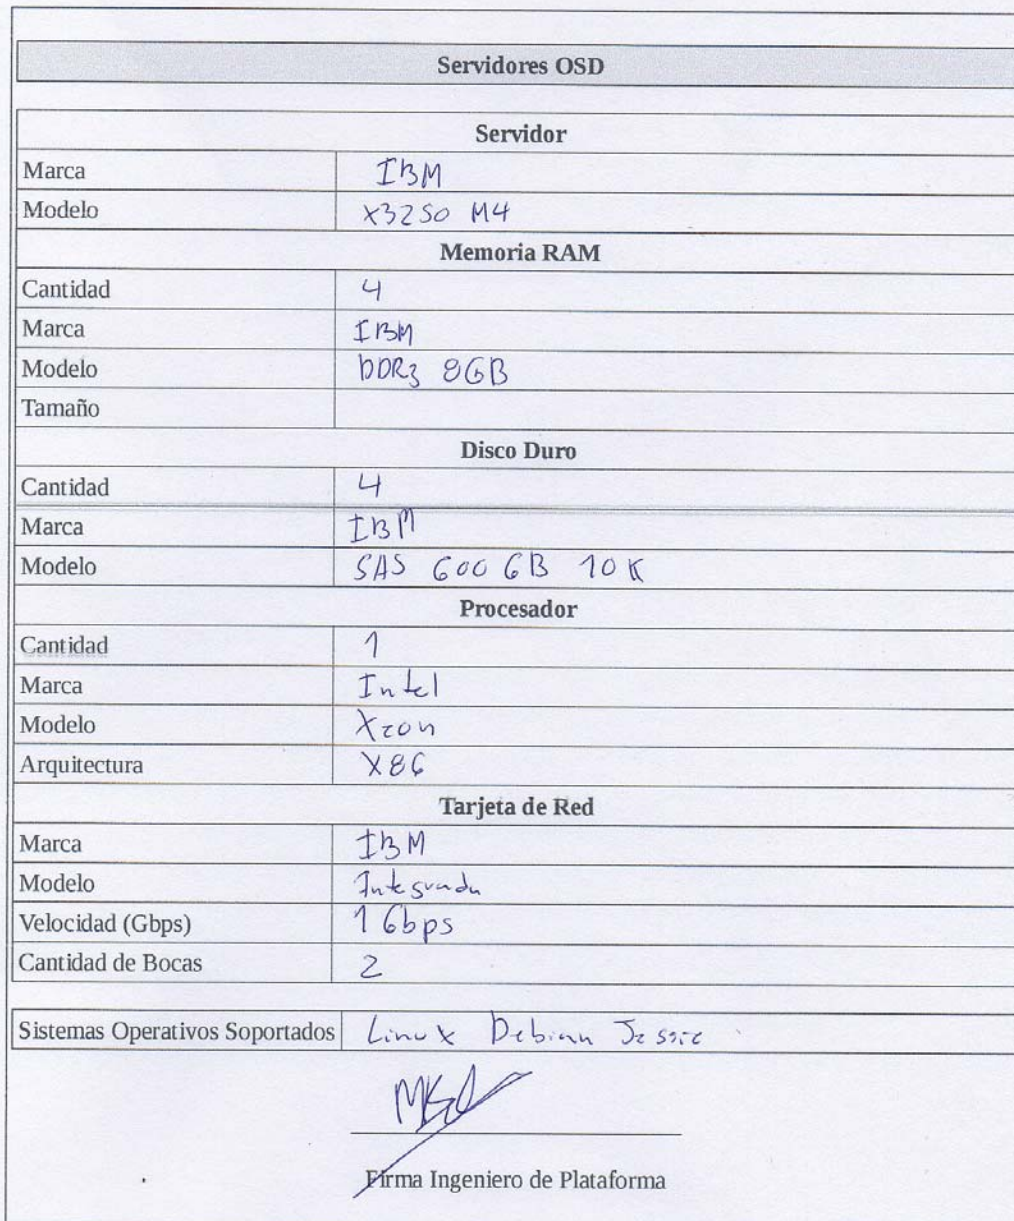 Servidores OSD
Servidor
Marca IBM
Modelo X3250 M4
Memoria RAM
Cantidad 4
Marca IBM
Modelo DDR3 8GB
Tamaño
Disco Duro
Cantidad 4
Marca IBM
Modelo SAS 600 GB 10K
Procesador
Cantidad 1
Marca Intel
Modelo Xeon
Arquitectura X86
Tarjeta de Red
Marca IBM
Modelo Integrada
Velocidad (Gbps) 1 Gbps
Cantidad de Bocas 2
Sistemas Operativos Soportados Linux Debian Jessie
Firma Ingeniero de Plataforma